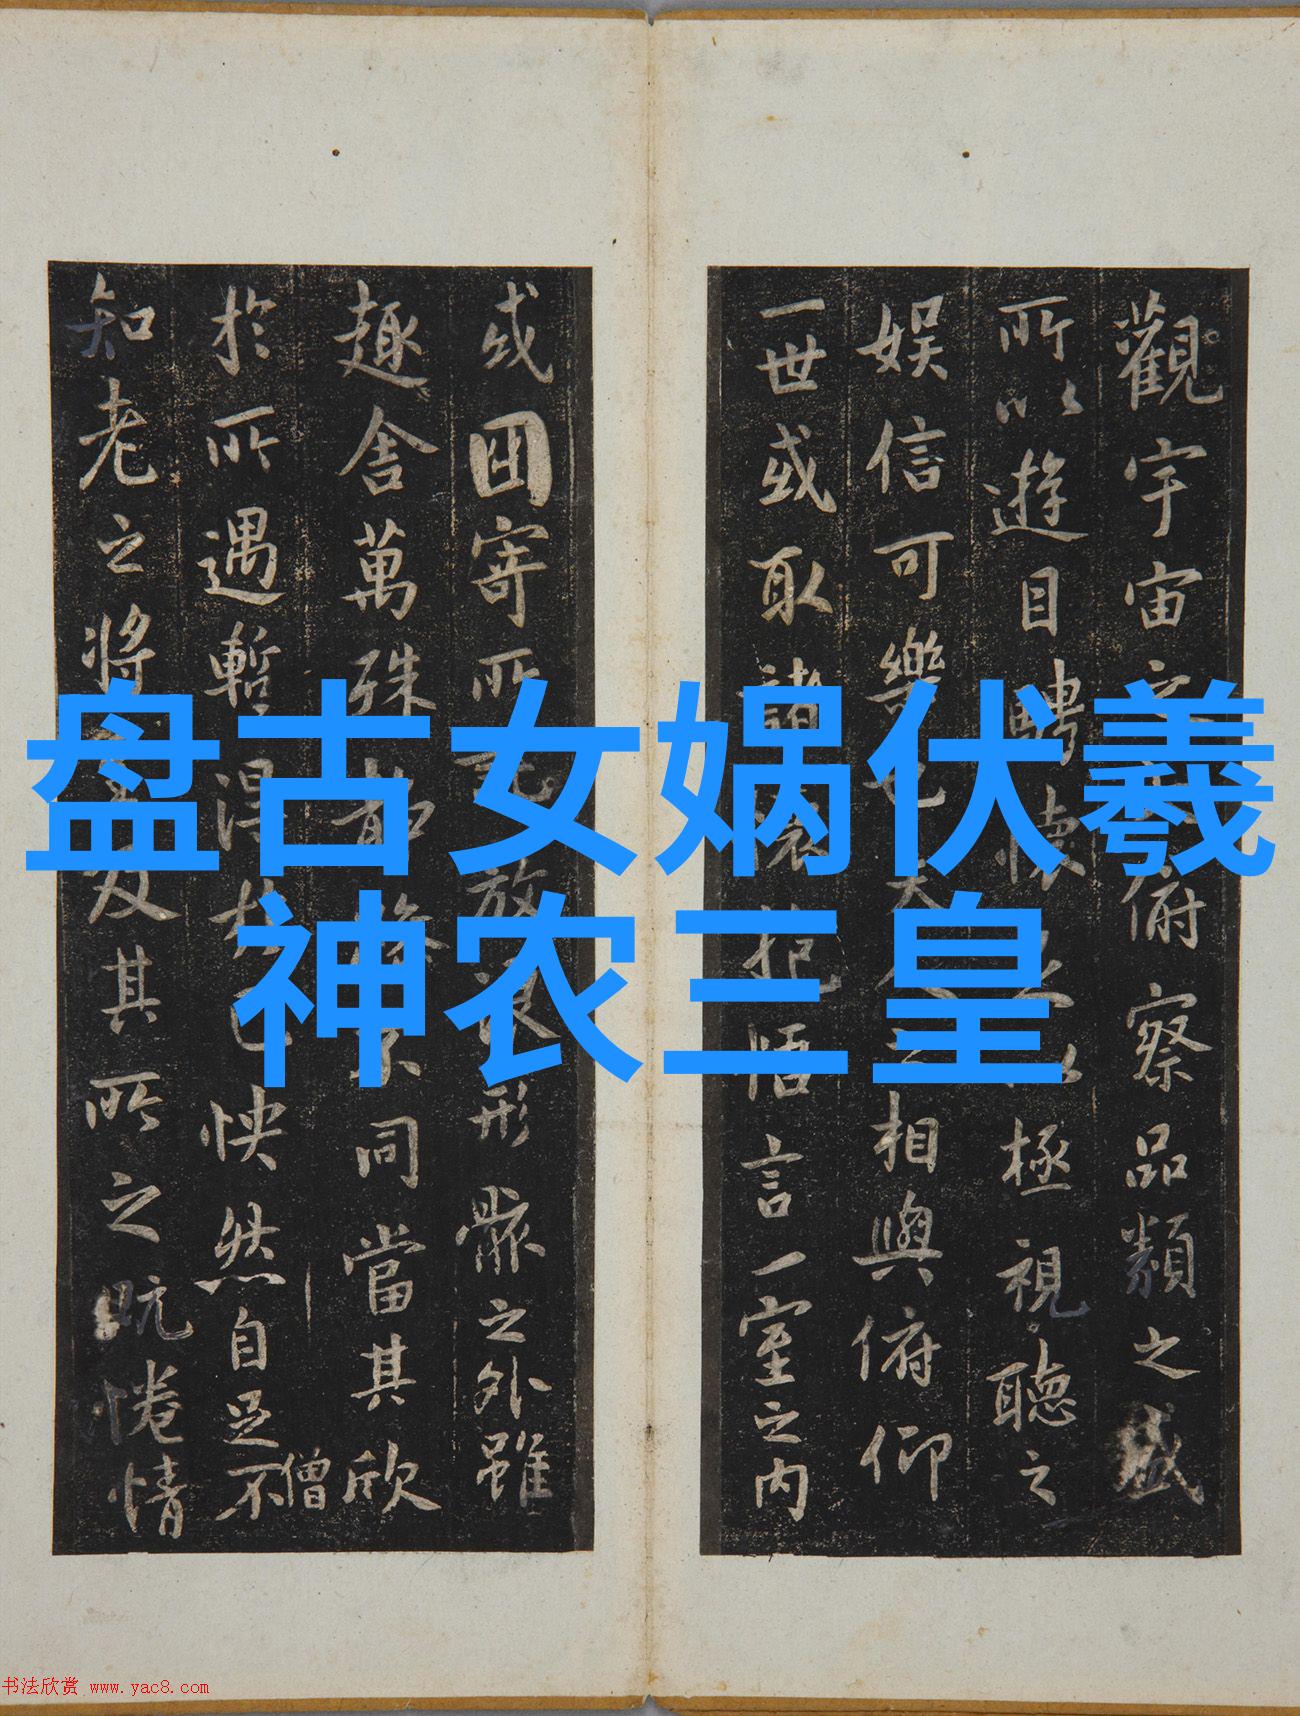 盘古女娲伏羲
神农三皇
觀宇宙之俯察品類之盛
所以遊目騁懷足以極視聽之
娛信可樂也夫人之相與俯仰
一世或取諸懷抱悟言一室之内
或因寄所託放浪形骸之外雖
趣舍萬殊不同當其欣
僧
於所遇暫得於己怏然自足不
知老之將至及其所之既惓情
书法欣赏 www.yac8.com